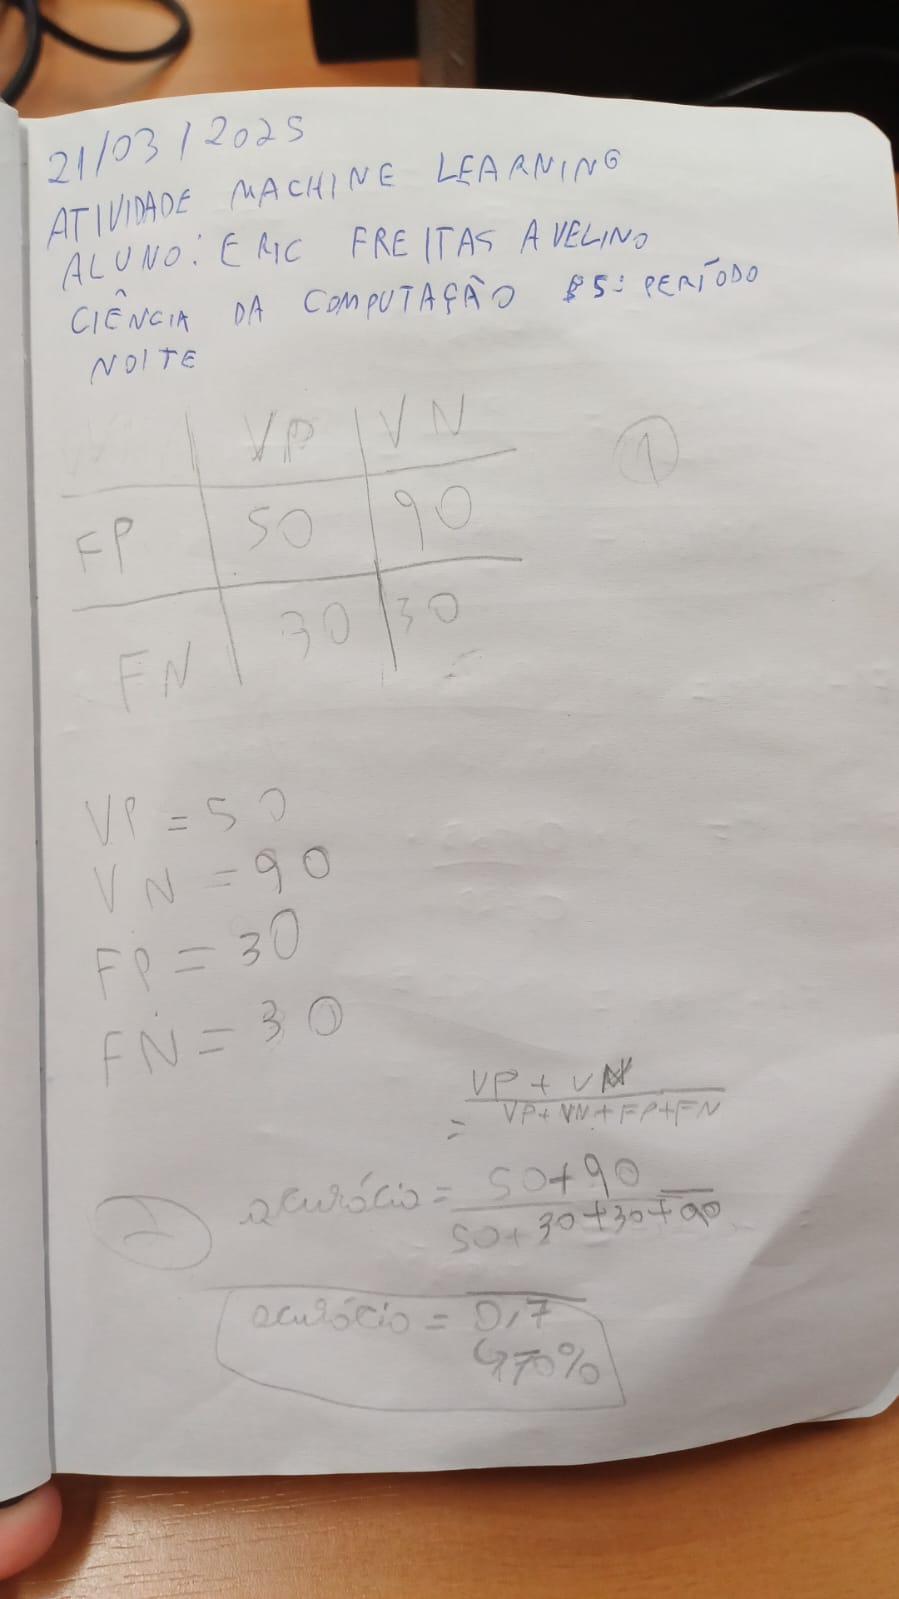 21/03/2025
ATIVIDADE MACHINE LEARNING
ALUNO: ERIC FREITAS AVELINO
CIÊNCIA DA COMPUTAÇÃO 5º PERÍODO
NOITE
VP VN
1
FP 50 90
FN 30 30
VP = 50
VN = 90
FP = 30
FN = 30
= VP + VN / VP + VN + FP + FN
2 acurácia = 50+90 / 50+30+30+90
acurácia = 0,7
↳ 70%